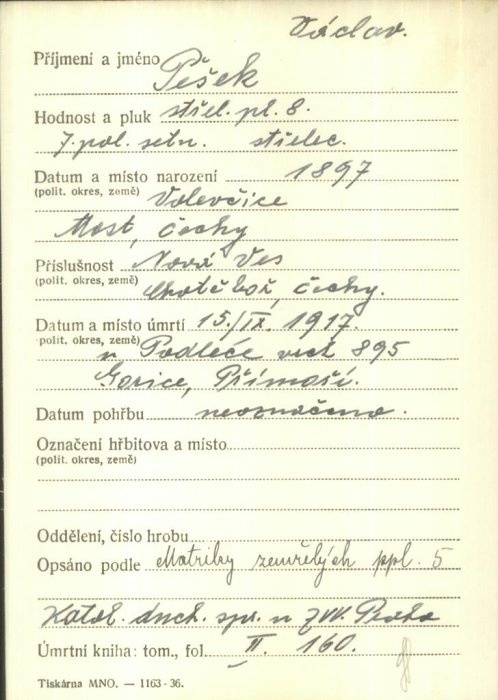 Václav.
Příjmení a jméno Pešek
Hodnost a pluk střel. pl. 8.
7. pol. setn. střelec.
Datum a místo narození 1897
(polit. okres, země) Volevčice
Most, Čechy
Příslušnost Nová Ves
(polit. okres, země) Chotěboř, Čechy.
Datum a místo úmrtí 15./IX. 1917.
(polit. okres, země) u Podleče vrch 895
Gorice, Přímoří.
Datum pohřbu neoznačeno.
Označení hřbitova a místo
(polit. okres, země)
Oddělení, číslo hrobu
Opsáno podle Matriky zemřelých ppl. 5
Katol. duch. spr. u ZVV. Praha
Úmrtní kniha: tom., fol. II. 160.
Tiskárna MNO. — 1163-36.